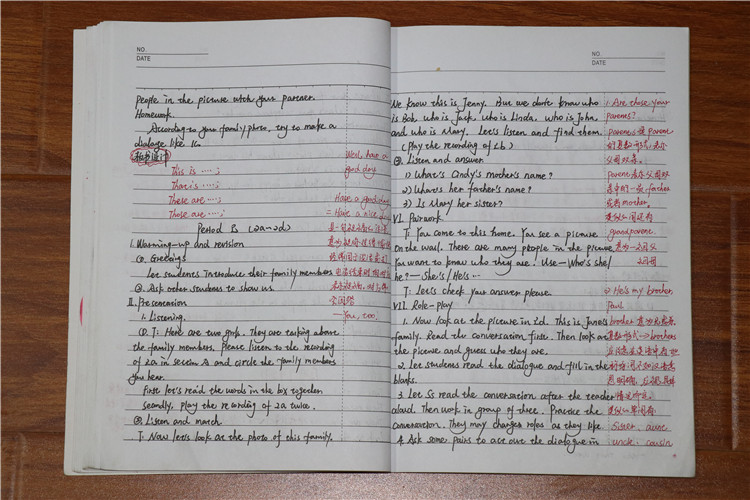 NO.
DATE
People in the picture with your partner.
Homework.
According to your family photo, try to make a
dialoge like 1c.
板书设计
This is ....;
That is ....;
These are ....;
Those are ....;
Well, have a
good day
Have a good day
= Have a nice day
Period B (2a-2d)
I. Warming-up and revision
①. Greetings
Let students introduce their family members
②. Ask other students to show us
全家福
II. Presentation
1. Listening.
— You, too.
①. T: Here are two girls. They are talking about
the family members. Please listen to the recording
of 2a in section A and circle the family members
you hear.
First let's read the words in the box together
Secondly, play the recording of 2a twice.
② Listen and match
T: Now let's look at the photo of this family.
NO.
DATE
We know this is Jenny. But we don't know who
is Bob, who is Jack, who is Linda, who is John,
and who is Mary. Let's listen and find them.
(Play the recording of 2b)
③. Listen and answer
1) What's Cindy's mother's name?
2) What's her father's name?
3) Is Mary her sister?
VI. Pairwork
T: You come to this home. You see a picture
on the wall. There are many people in the picture
You want to know who they are. Use—Who's she/
he?—She's/He's...
T: Let's check your answer please.
VII. Role-play
1. Now look at the picture in 2d. This is Jane's
family. Read the conversation first. Then look at
the picture and guess who they are.
2. Let students read the dialogue and fill in the
blanks.
3. Let Ss read the conversation after the teacher
aloud. Then work in group of three. Practice the
conversation. They may change roles as they like
4. Ask some pairs to act out the dialogue in
1. Are those your
parents?
parents是parent
父母双亲。
grandparent.
He's my brother,
Paul
sister, aunt
uncle, cousin